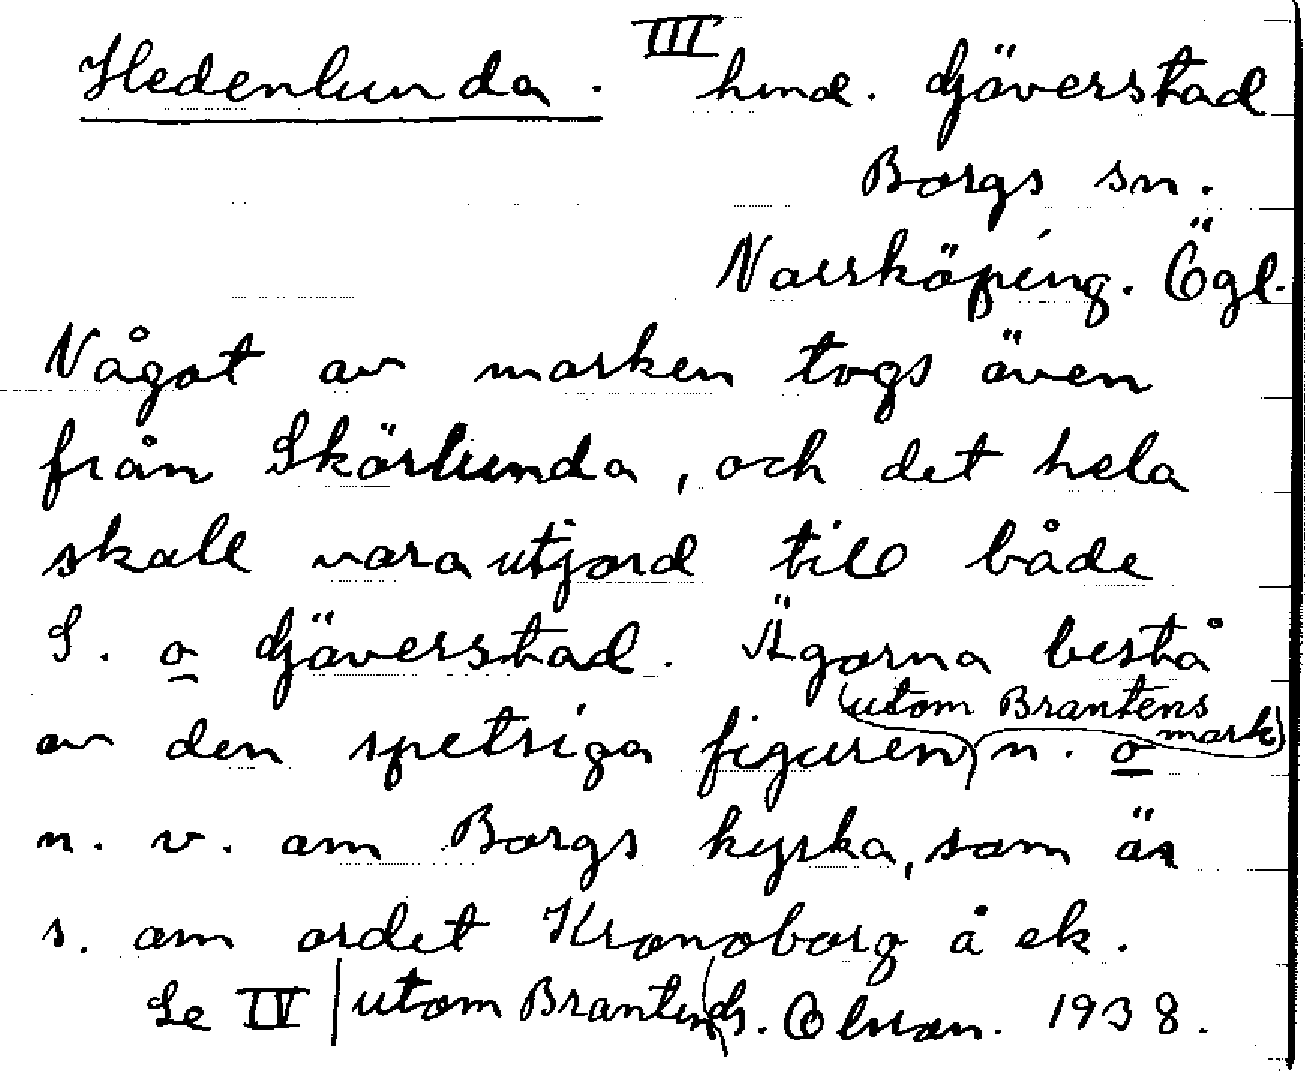 III
Hedenlunda. hmd. Gjäverstad
Borgs sn.
Norrköping. Ögl.
Något av marken togs även
från Skörlunda, och det hela
skall vara utjord till både
S. o Gjäverstad. Ägorna bestå
utom Brantens
av den spetsiga figuren n. o mark
n. v. om Borgs kyrka, som är
s. om ordet Kronoborg å ek.
Se IV utom Branten G. Olsson. 1938.